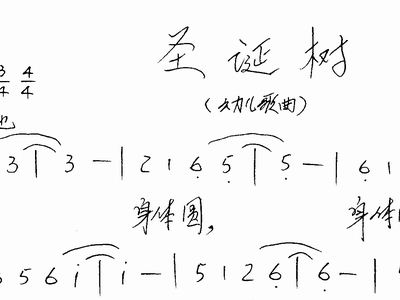 圣诞树
3/4 4/4
(幼儿歌曲)
3 | 3 — | 2 1 6 5 | 5 — | 6 1
身体圆， 身体
5 6 i | i — | 5 1 2 6 | 6 — |